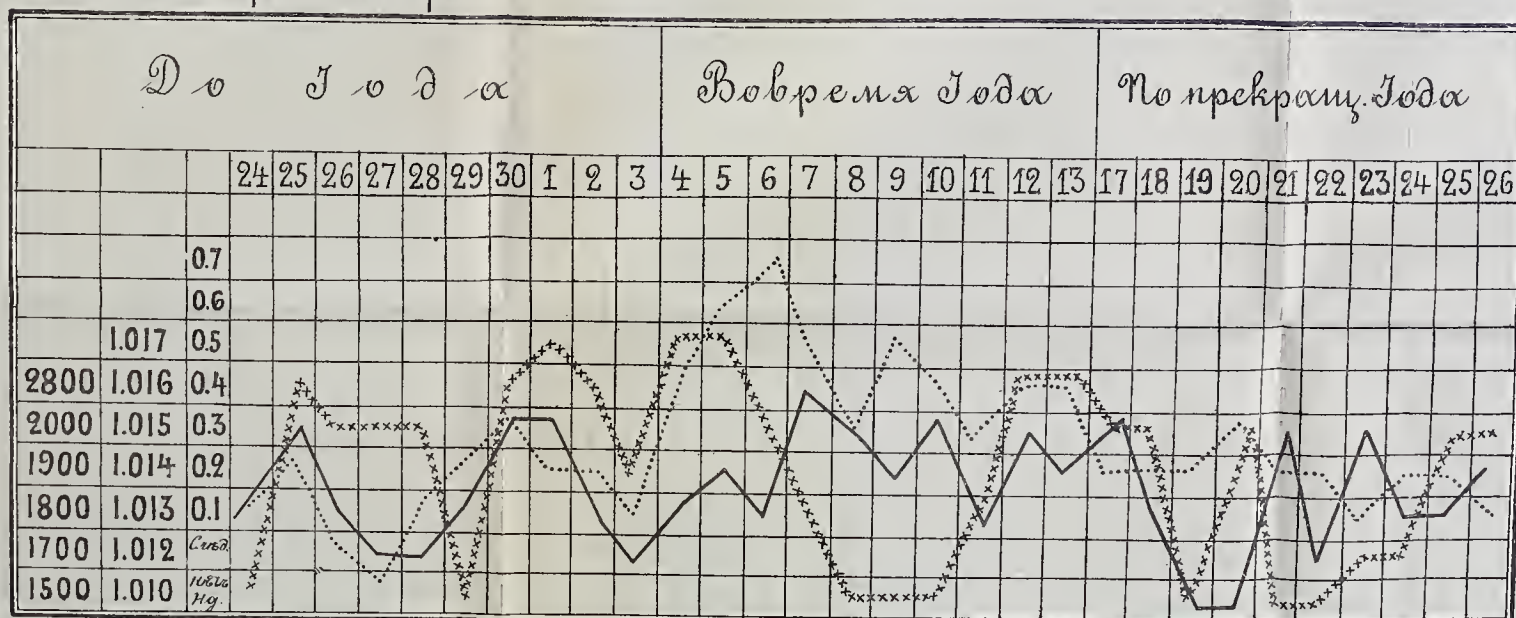 До Іода Вовремя Іода По прекращ. Іода
24 25 26 27 28 29 30 1 2 3 4 5 6 7 8 9 10 11 12 13 17 18 19 20 21 22 23 24 25 26
0.7
0.6
1.017 0.5
2800 1.016 0.4
2000 1.015 0.3
1900 1.014 0.2
1800 1.013 0.1
1700 1.012 Слѣд.
1500 1.010